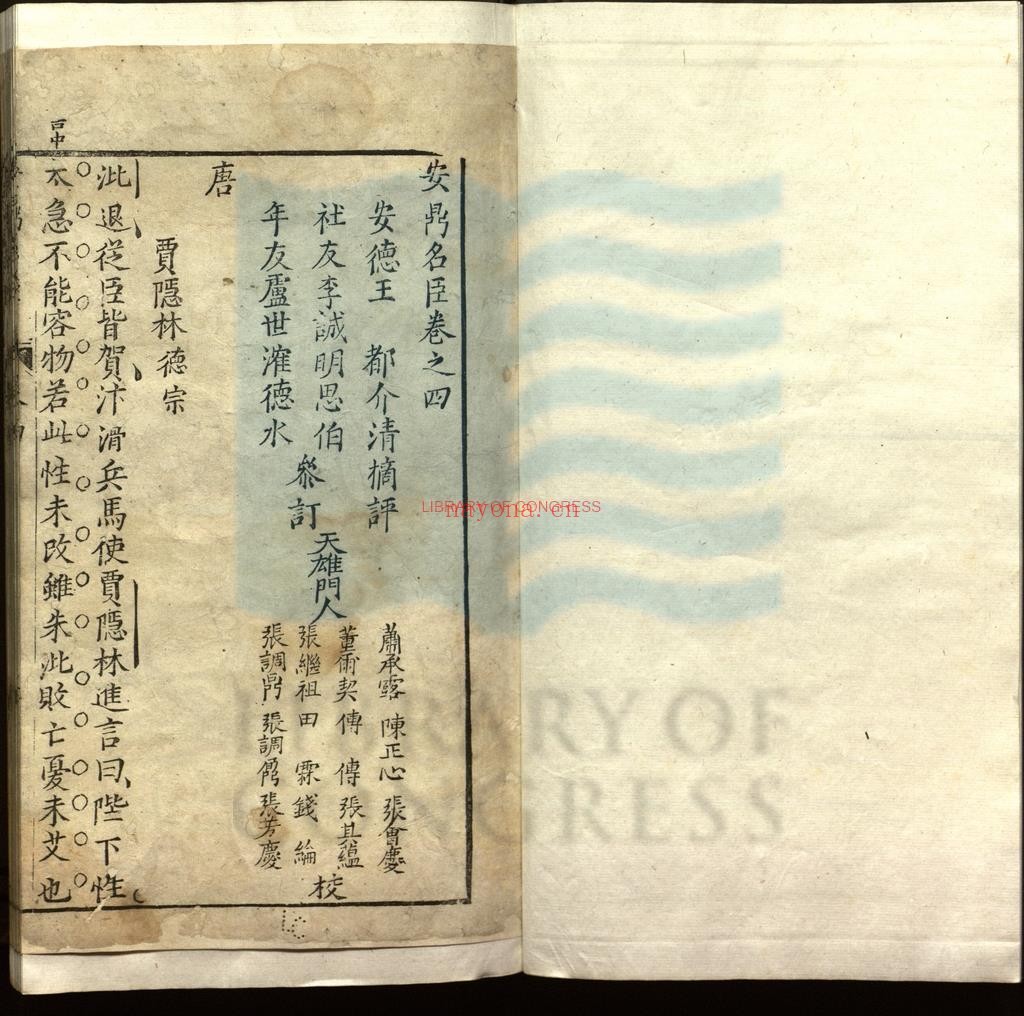 安鼎名臣卷之四
安德王　都介清摘評
社友李誠明思伯
年友盧世㴶德水
叅訂
天雄門人
蕭承露　陳正心　張會慶
董爾契　傅　傅　張其蘊
張繼祖　田　霖　錢　綸
張調鼎　張調　張芳慶
校
唐
賈隱林德宗
泚退從臣皆賀汴滑兵馬使賈隱林進言曰陛下性
太急不能容物若此性未改雖朱泚敗亡憂未艾也
LIBRARY OF CONGRESS
mryona.cn
LIBRARY OF
CONGRESS